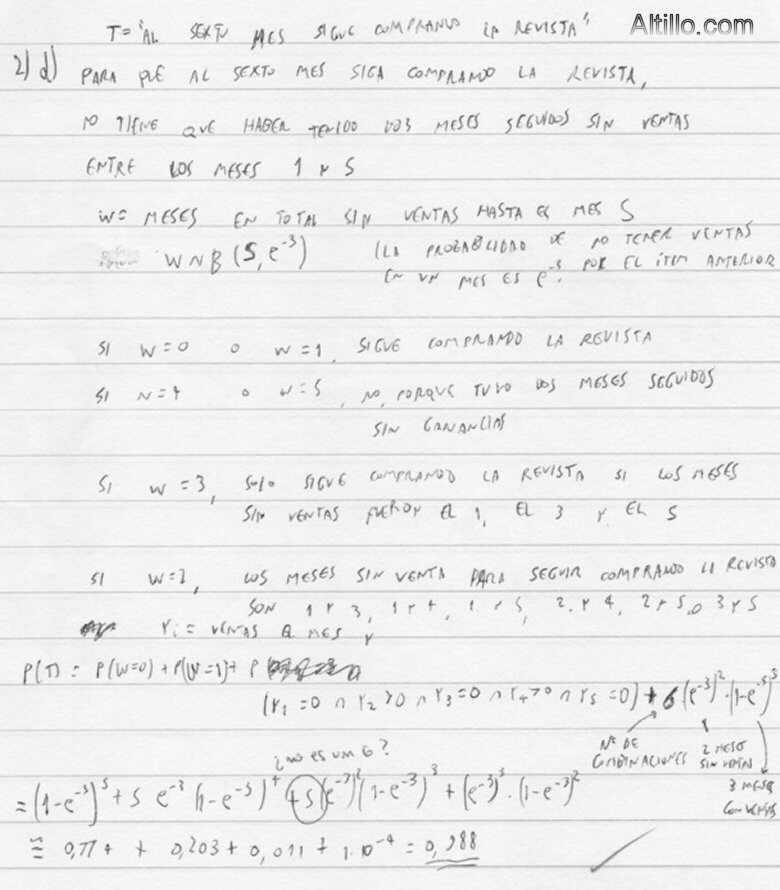 Altillo.com
T = "AL SEXTO MES SIGUE COMPRANDO LA REVISTA"
2) d) PARA QUE AL SEXTO MES SIGA COMPRANDO LA REVISTA,
NO TIENE QUE HABER TENIDO DOS MESES SEGUIDOS SIN VENTAS
ENTRE LOS MESES 1 Y 5
W = MESES EN TOTAL SIN VENTAS HASTA EL MES 5
W ~ B (5, e^-3) (LA PROBABILIDAD DE NO TENER VENTAS
EN UN MES ES e^-3 POR EL ITEM ANTERIOR
SI W=0 O W=1, SIGUE COMPRANDO LA REVISTA
SI W=4 O W=5, NO, PORQUE TUVO DOS MESES SEGUIDOS
SIN GANANCIAS
SI W=3, SOLO SIGUE COMPRANDO LA REVISTA SI LOS MESES
SIN VENTAS FUERON EL 1, EL 3 Y EL 5
SI W=2, LOS MESES SIN VENTA PARA SEGUIR COMPRANDO LA REVISTA
SON 1 Y 3, 1 Y 4, 1 Y 5, 2 Y 4, 2 Y 5, O 3 Y 5
Yi = VENTAS EL MES
P(T) = P(W=0) + P(W=1) + P
(Y1 =0 ∩ Y2 >0 ∩ Y3 =0 ∩ Y4 >0 ∩ Y5 =0) + 6 (e^-3)^2 · (1-e^-3)^3
Nº DE COMBINACIONES
2 MESES SIN VENTAS
3 MESES CON VENTAS
¿no es un 6?
= (1-e^-3)^5 + 5 e^-3 (1-e^-3)^4 + 5 (e^-3)^2 (1-e^-3)^3 + (e^-3)^3 · (1-e^-3)^2
≅ 0,774 + 0,203 + 0,011 + 1·10^-4 = 0,988